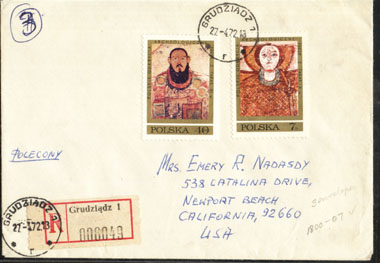 GRUDZIĄDZ 1
27-4.72.18
POLSKA 40
POLSKA 7
POLECONY
MRS. EMERY R. NADASDY
538 CATALINA DRIVE,
NEWPORT BEACH
CALIFORNIA, 92660
USA
GRUDZIĄDZ 1
27-4.72.18
R
Grudziądz 1